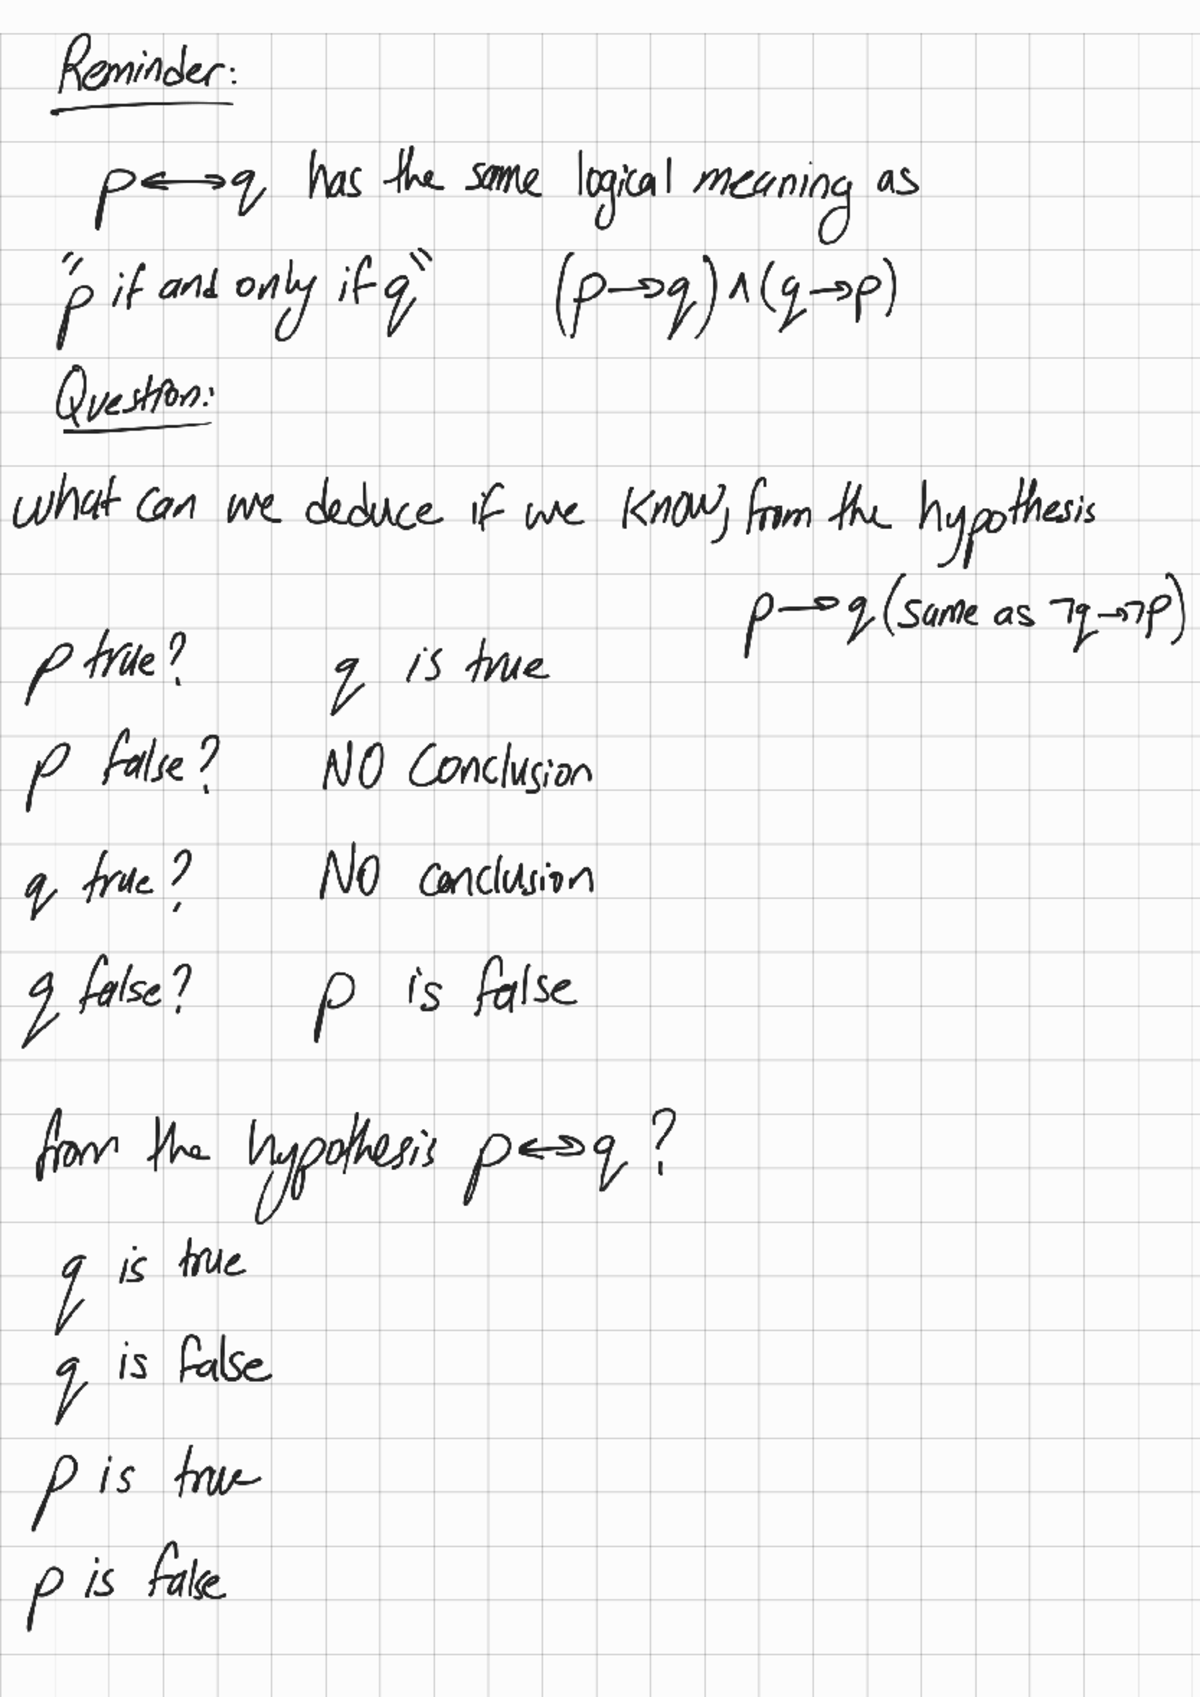 Reminder:
p⟷q has the same logical meaning as
"p if and only if q" (p→q)∧(q→p)
Question:
what can we deduce if we know, from the hypothesis
p→q (same as ¬q→¬p)
p true? q is true
p false? NO Conclusion
q true? NO conclusion
q false? p is false
from the hypothesis p⟷q?
q is true
q is false
p is true
p is false